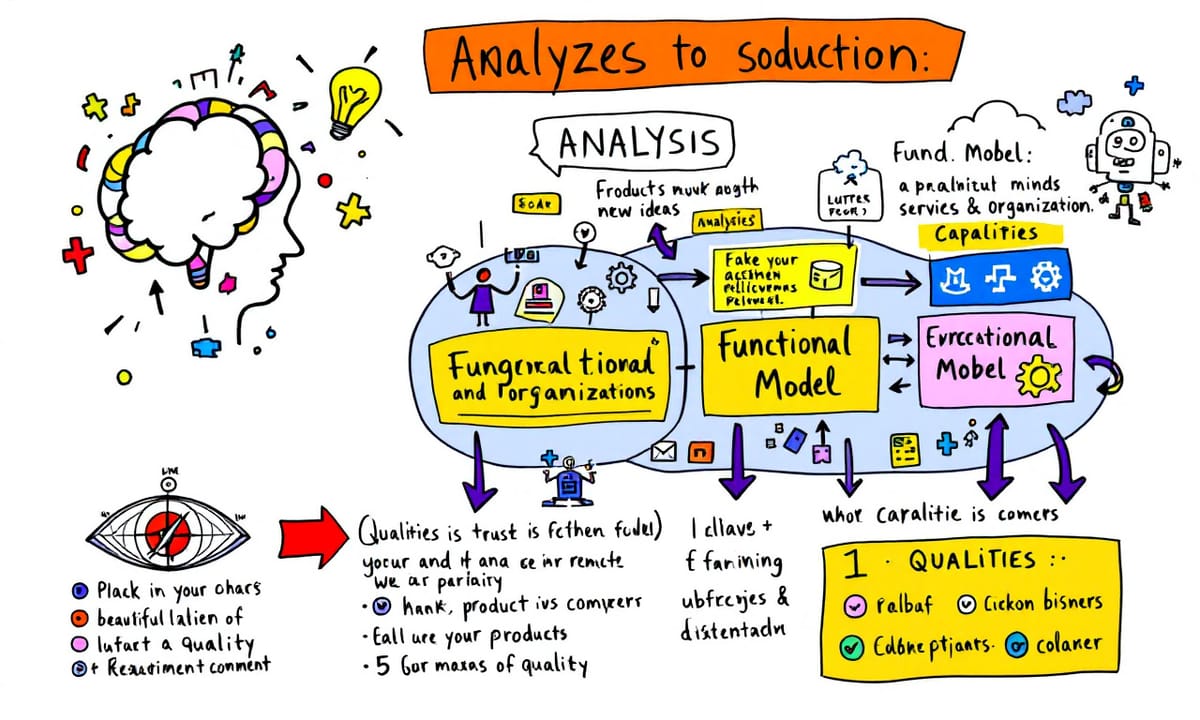 Analyzes to soduction:
ANALYSIS
Froducts muvk aogth
new ideas
Analysies
LUTTER
Fund. Mobel:
a pralnitut minds
servies & organization.
Capalities
Fake your
Functional
Model
Mobel
and organizations
(Qualities is trust is fcthen fudel)
yocur and it ana ce inr remete
We ar pariaity
• hank, product ivs compxers
• Eall ure your products
• 5 Gor maxas of quality
I cllave +
f farining
ubfrcyes &
distentadn
whor Caralitie is comers
1 . QUALITIES :·
Palbaf
Cickon bisners
Edbne ptjants.
colaner
Plack in your ohars
beautiful lalien of
lufart a quality
+ Resartiment comment